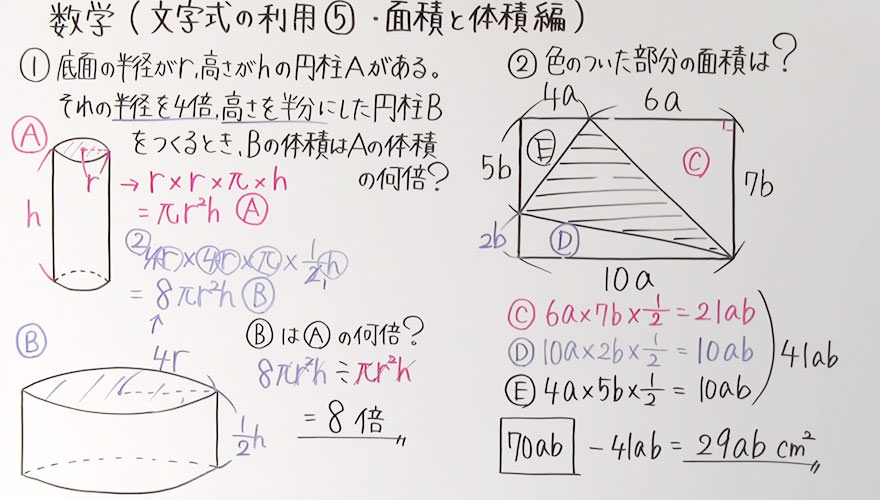 数学(文字式の利用⑤・面積と体積編)
① 底面の半径がr,高さがhの円柱Aがある。
それの半径を4倍,高さを半分にした円柱B
をつくるとき、Bの体積はAの体積
の何倍?
Ⓐ
r
h
→ r×r×π×h
= πr²h Ⓐ
②
4r×4r×π×1/2h
1
= 8πr²h Ⓑ
↑
Ⓑ
4r
1/2h
ⒷはⒶの何倍?
8πr²h÷πr²h
= 8倍
② 色のついた部分の面積は?
4a
6a
5b
Ⓔ
Ⓒ
7b
2b
Ⓓ
10a
Ⓒ 6a×7b×1/2=21ab
Ⓓ 10a×2b×1/2=10ab
Ⓔ 4a×5b×1/2=10ab
41ab
70ab -41ab=29ab cm²